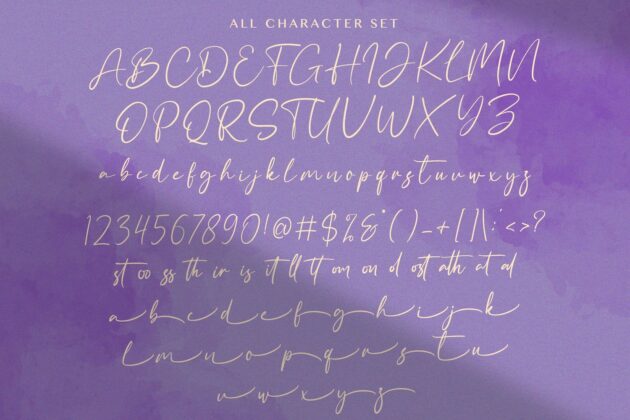 ALL CHARACTER SET
ABCDEFGHIJKLMN
OPQRSTUVWXYZ
abcdefghijklmnopqrstuvwxyz
1234567890!@#$%&*()_+[]|\:;'<>?
st oo ss th ir is it ll tt om on d ost ath at al
abcdefghijk
lmnopqrstu
vwxyz